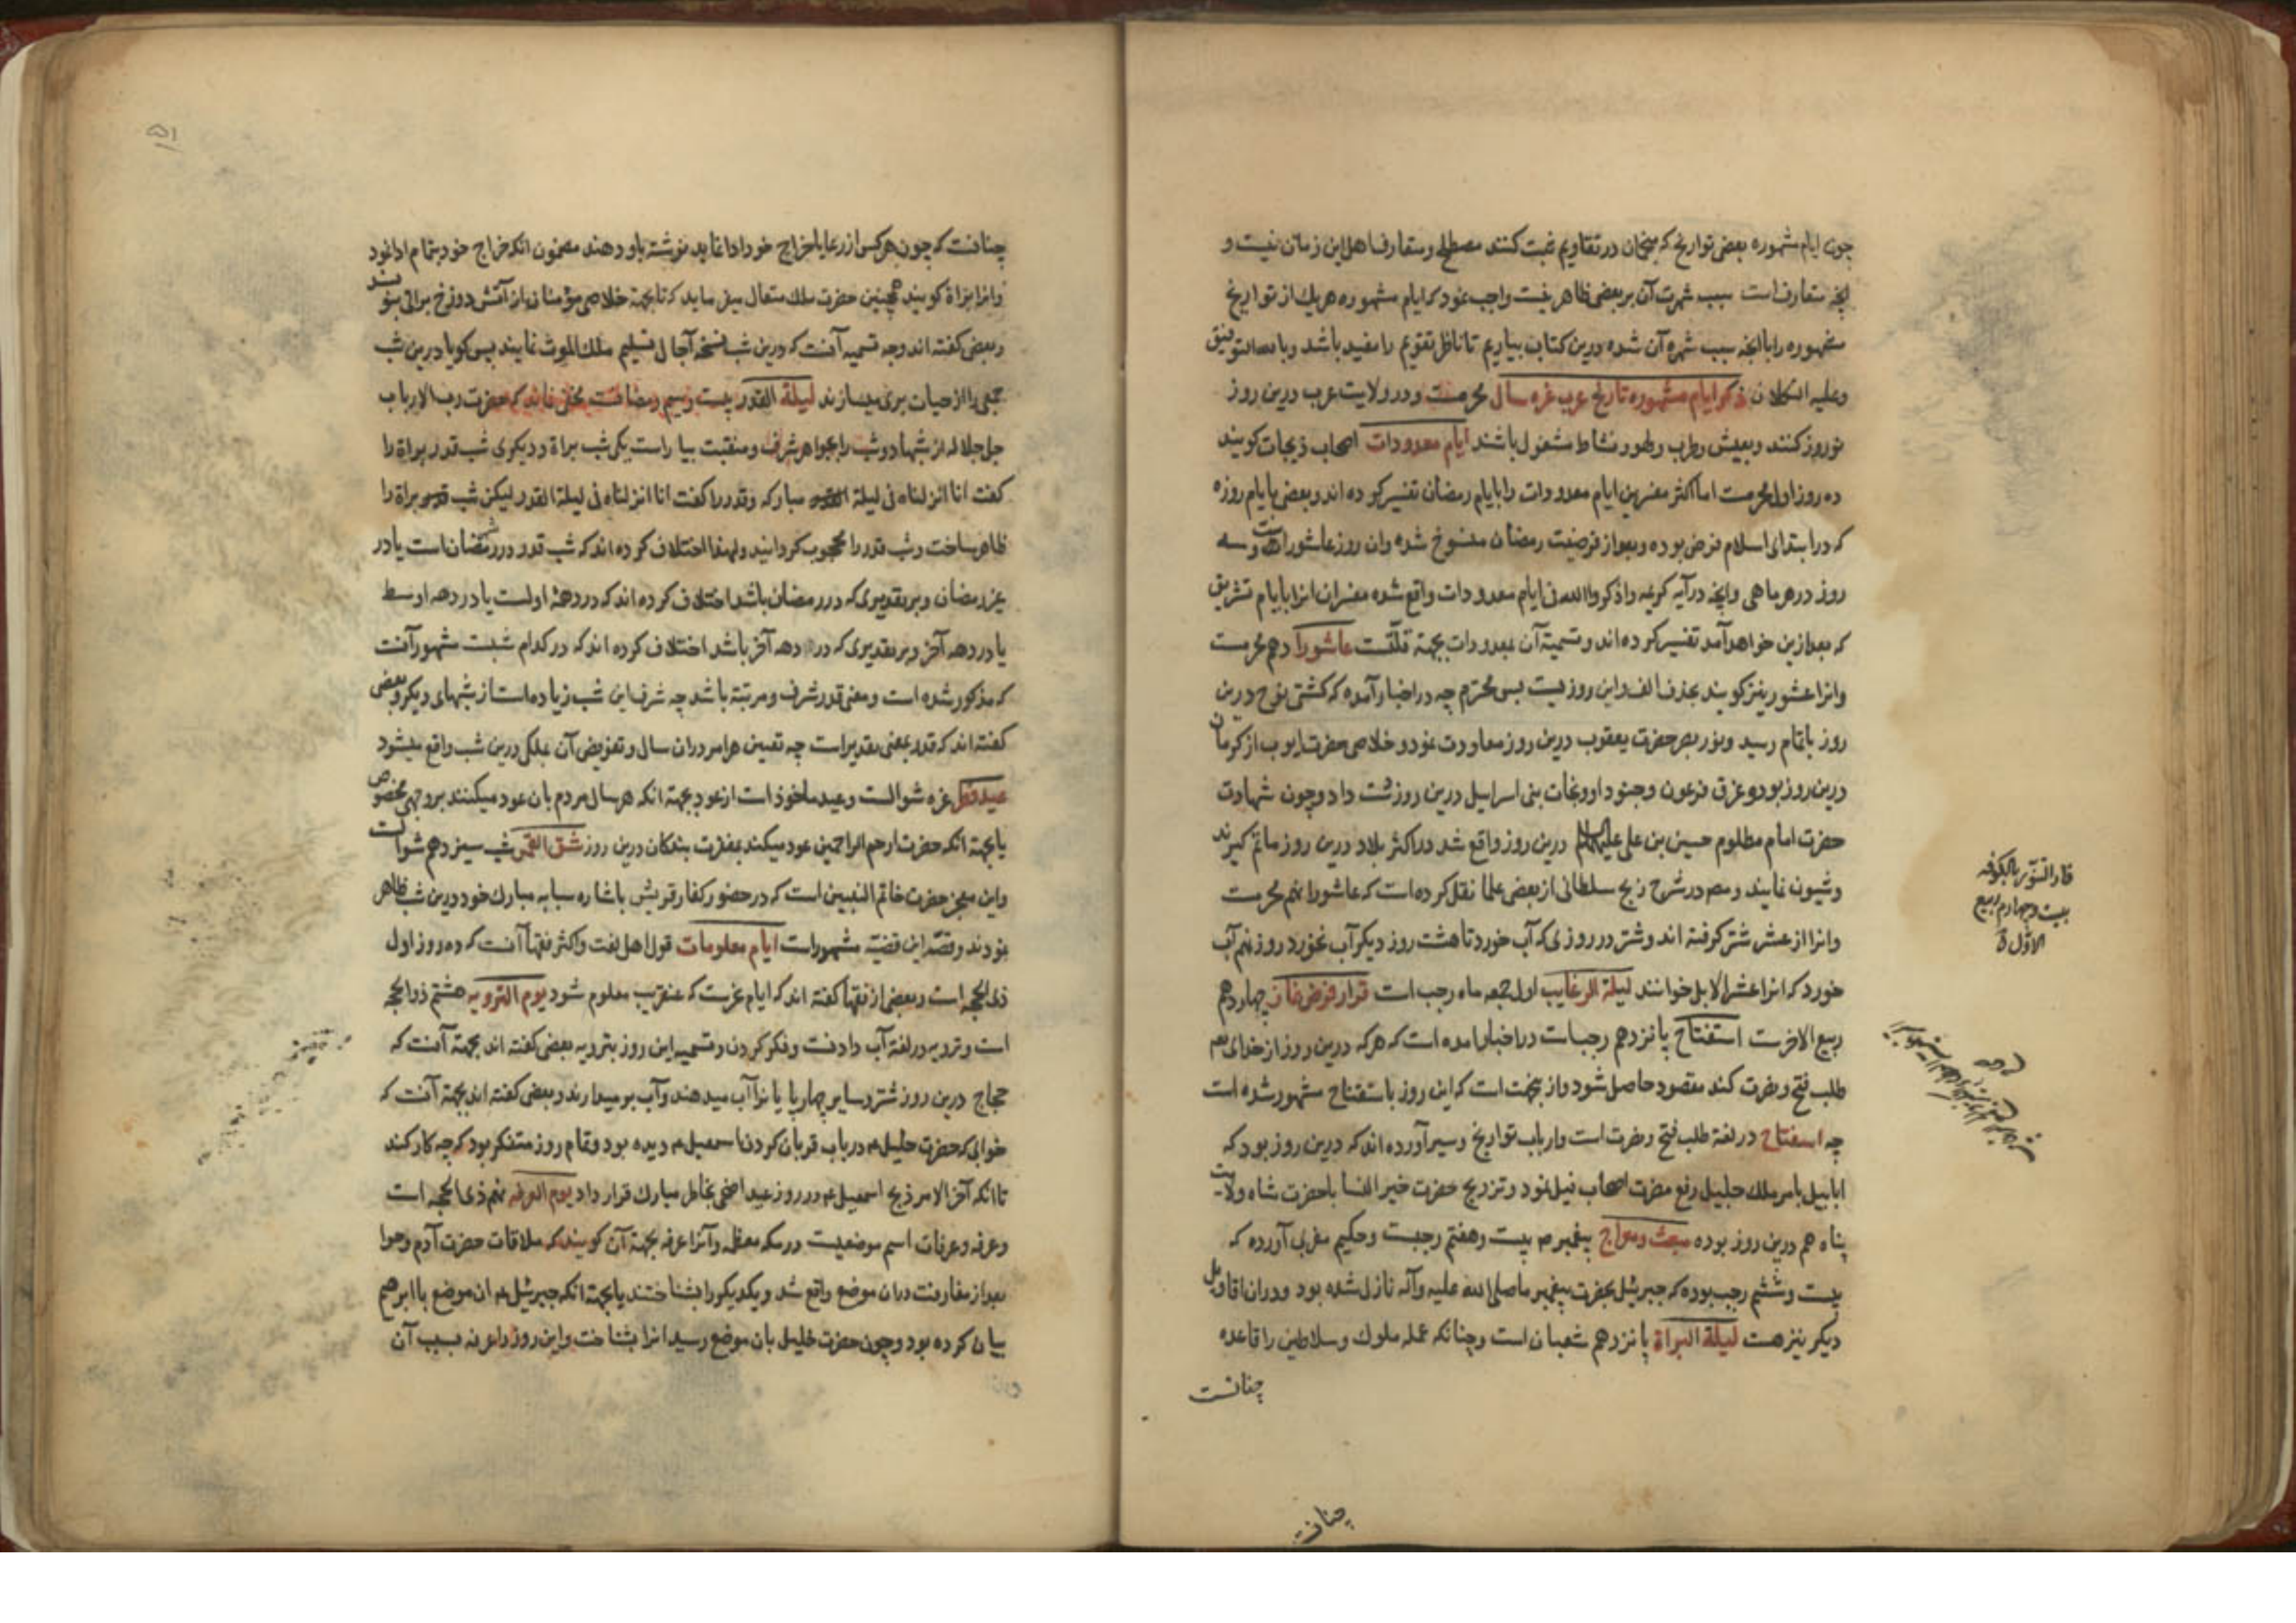 چون ایام مشهوره بعضی تواریخ که منجمان در تقاویم ثبت کنند مصطلح و متعارف اهل این زمان نیست و
آنچه متعارف است سبب شهرت آن بر بعضی ظاهر نیست واجب نمود که ایام مشهوره هریک از تواریخ
مشهوره را با آنچه سبب شهره آن شده درین کتاب بیاریم تا ناظر تقویم را مفید باشد و بالله التوفیق
وعلیه التکلان ذکر ایام مشهوره تاریخ عرب غره سال محرمست و در ولایت عرب درین روز
نوروز کنند و بعیش و طرب و لهو و نشاط مشغول باشند ایام معدودات اصحاب ذیجات کویند
ده روز اول محرمست اما اکثر مفسرین ایام معدودات را بایام رمضان تفسیر کرده اند و بعضی بایام روزه
که در ابتدای اسلام فرض بوده و بعد از فرضیت رمضان منسوخ شده وان روز عاشوراست و سه
روز در هر ماهی وانچه در آیه کریمه واذکروا الله فی ایام معدودات واقع شده مفسران انرا بایام تشریق
که بعد ازین خواهد آمد تفسیر کرده اند و تسمیة آن بمعدودات بجهة قلّتست عاشورا دهم محرمست
وانرا عشور نیز کویند بحذف الف و این روزیست بس محترم چه در اخبار آمده که کشتی نوح درین
روز باتمام رسید و نور بصر حضرت یعقوب درین روز معاودت نمود و خلاصی حضرت ایوب از کرمان
درین روز بود و غرق فرعون و جنود او و نجات بنی اسرائیل درین روز دست داد و چون شهادت
حضرت امام مظلوم حسین بن علی علیهما السلام درین روز واقع شد در اکثر بلاد درین روز ماتم کیرند
وشیون نمایند و مص در شرح زیج سلطانی از بعضی علما نقل کرده است که عاشورا نهم محرمست
وانرا از عشر شتر کرفته اند و شتر در روزی که آب خورد تا هشت روز دیکر آب نخورد روز نهم آب
خورد که انرا عشر الابل خوانند لیلة الرغایب اول جمعه ماه رجب است قرار فرض نماز چهاردهم
ربیع الاخرست استفتاح پانزدهم رجب است در اخبار آمده است که هرکه درین روز از خدای تعم
طلب فتح و نصرت کند مقصود حاصل شود و از ینجهت است که این روز باستفتاح مشهور شده است
چه استفتاح در لغة طلب فتح و نصرت است و ارباب تواریخ و سیر آورده اند که درین روز بود که
ابابیل بامر ملک جلیل رفع مضرت اصحاب فیل نمود و تزویج حضرت خیر النسا با حضرت شاه ولایت
پناه هم درین روز بوده مبعث و معراج پیغمبر م بیست و هفتم رجبست و حکیم مغربی آورده که
بیست و ششم رجب بوده که جبرئیل بحضرت پیغمبر ما صلی الله علیه وآله نازل شده بود و در ان اقاویل
دیکر نیز هست لیلة البراة پانزدهم شعبان است و چنانکه عمله ملوک و سلاطین را قاعده
چنانست
چنانست
فار التنّور بالکوفه
بیست و چهارم ربیع
الاوّل
چنانست که چون هرکس از رعایا خراج خود ادا نماید نوشته باو دهند مضمون انکه خراج خود بتمام ادا نمود
وانرا براة کویند همچنین حضرت ملک متعال میفرماید که تا بجهة خلاصی مؤمنان از آتش دوزخ براتی بنویسند
و بعضی کفته اند وجه تسمیه آنست که درین شب نسخه آجال تسلیم ملک الموت نمایند پس کویا درین شب
جمعی را از حیات بری میسازند لیلة القدر بیست و سیم رمضانست مخفی نماند که حضرت رب الارباب
جل جلاله از شبها دو شب را بجواهر شرف و منقبت بیاراست یکی شب براة و دیکری شب قدر براة را
کفت انا انزلناه فی لیلة مبارکه و قدر را کفت انا انزلناه فی لیلة القدر لیکن شب براة را
ظاهر ساخت و شب قدر را محجوب کردانید و لهذا اختلاف کرده اند که شب قدر در رمضان است یا در
غیر رمضان و بر تقدیری که در رمضان باشد اختلاف کرده اند که در دهۀ اولست یا در دهه اوسط
یا در دهه آخر و بر تقدیری که در دهه آخر باشد اختلاف کرده اند که در کدام شبست مشهور آنست
که مذکور شده است و معنی قدر شرف و مرتبة باشد چه شرف این شب زیاده است از شبهای دیکر و بعضی
کفته اند که قدر بمعنی تقدیر است چه تعیین هر امر در ان سال و تفویض آن بملکی درین شب واقع میشود
عید فطر غره شوالست و عید ماخوذ است از عود بجهة انکه هر سال مردم بان عود میکنند بر وجهی مخصوص
یا بجهة انکه حضرت ارحم الراحمین عود میکند بمغفرت بندکان درین روز شق القمر شب سیزدهم شوالست
واین معجز حضرت خاتم النبیین است که در حضور کفار قریش باشاره سبابه مبارک خود درین شب ظاهر
نمودند و قصّه این قضیّه مشهور است ایام معلومات قول اهل لغت و اکثر فقها آنست که ده روز اول
ذی الحجه است و بعضی از فقها کفته اند که ایام غرست که عنقریب معلوم شود یوم الترویه هشتم ذوالحجه
است و ترویه در لغة آب دادنست و فکر کردن و تسمیه این روز بترویه بعضی کفته اند بجهة آنست که
حجاج درین روز شتر و سایر چهارپایانرا آب میدهند و آب بر میدارند و بعضی کفته اند بجهة آنست که
خوابی که حضرت خلیل م در باب قربان کردن اسمعیل م دیده بود و تمام روز متفکر بود که چه کار کند
تا انکه آخر الامر ذبح اسمعیل م در روز عید اضحی بخاطر مبارک قرار داد یوم العرفه نهم ذی الحجه است
وعرفه و عرفات اسم موضعیست در مکه معظمه و آنرا عرفه بجهة آن کویند که ملاقات حضرت آدم و حوا
بعد از مفارقت دران موضع واقع شد و یکدیکر را بشناختند یا بجهة انکه جبرئیل م ان موضع با ابرهیم
بیان کرده بود و چون حضرت خلیل بان موضع رسید انرا بشناخت واین روز را عرفه بسبب آن